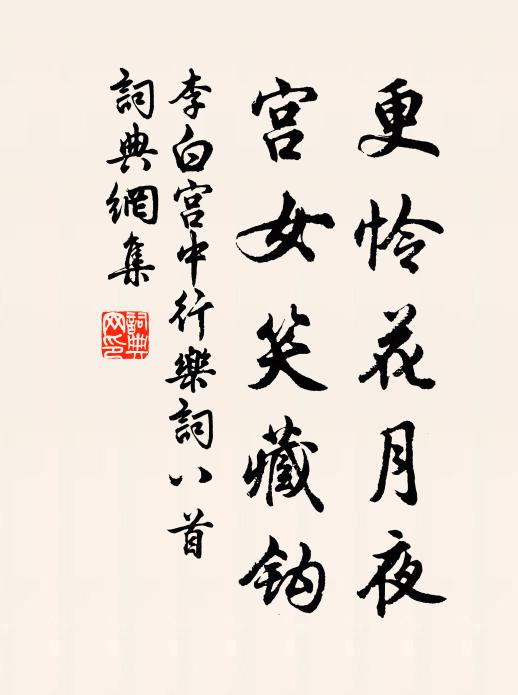 更怜花月夜
宫女笑藏钩
李白宫中行樂詞八首
詞典網集
詞典網印